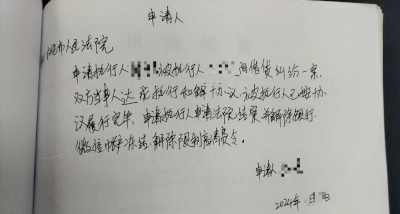 申请人
阳市人民法院
申请执行人 被执行人 因借贷纠纷一案,
双方当事人达成执行和解协议,被执行人已按协
议履行完毕,申请执行人申请法院结案并解除银行、
微信帐户冻结,解除限制高消费令。
申请人
2024年 月 日